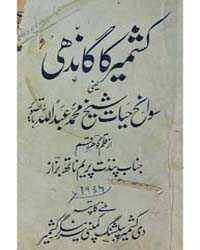 کشمیر کا گاندھی
یعنی
سوانح حیات شیخ محمد عبداللہ
از قلم
جناب پنڈت پریم ناتھ بزاز
۱۹۴۶
ملنے کا پتہ
دی کشمیر پبلشنگ کمپنی سرینگر کشمیر